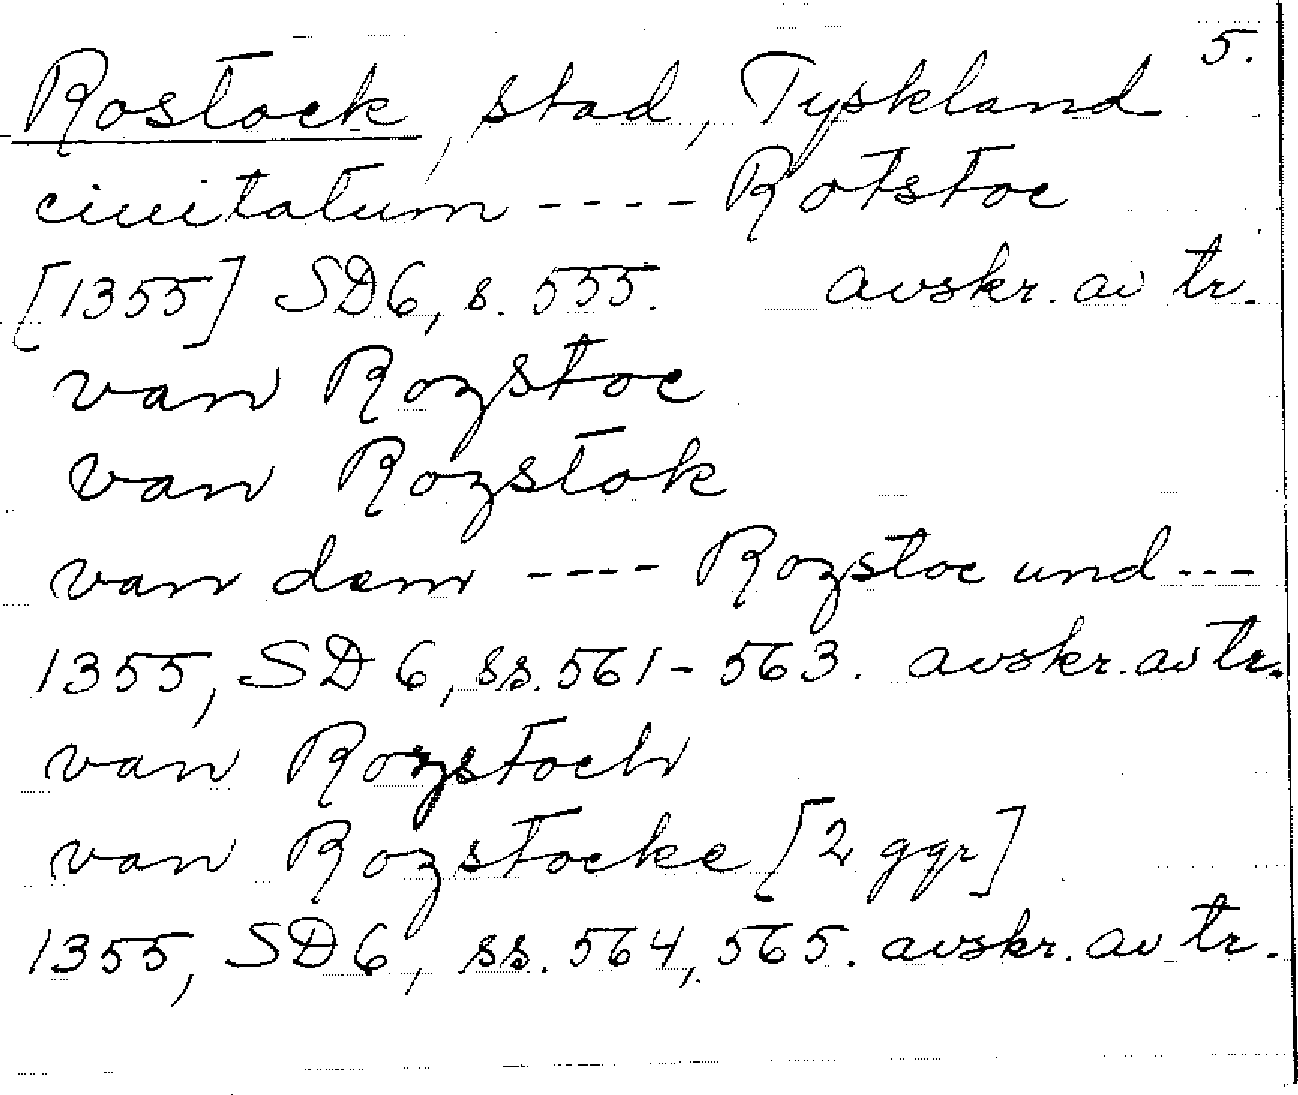 5.
Rostock, stad, Tyskland
ciuitatum ---- Rotstoc
[1355] SD6, s. 555. avskr. av tr.
van Rozstoc
van Rozstok
van dem ---- Rozstoc und ---
1355, SD 6, ss. 561-563. avskr. av tr.
van Rozstoch
van Rozstocke [2 ggr]
1355, SD6, ss. 564, 565. avskr. av tr.